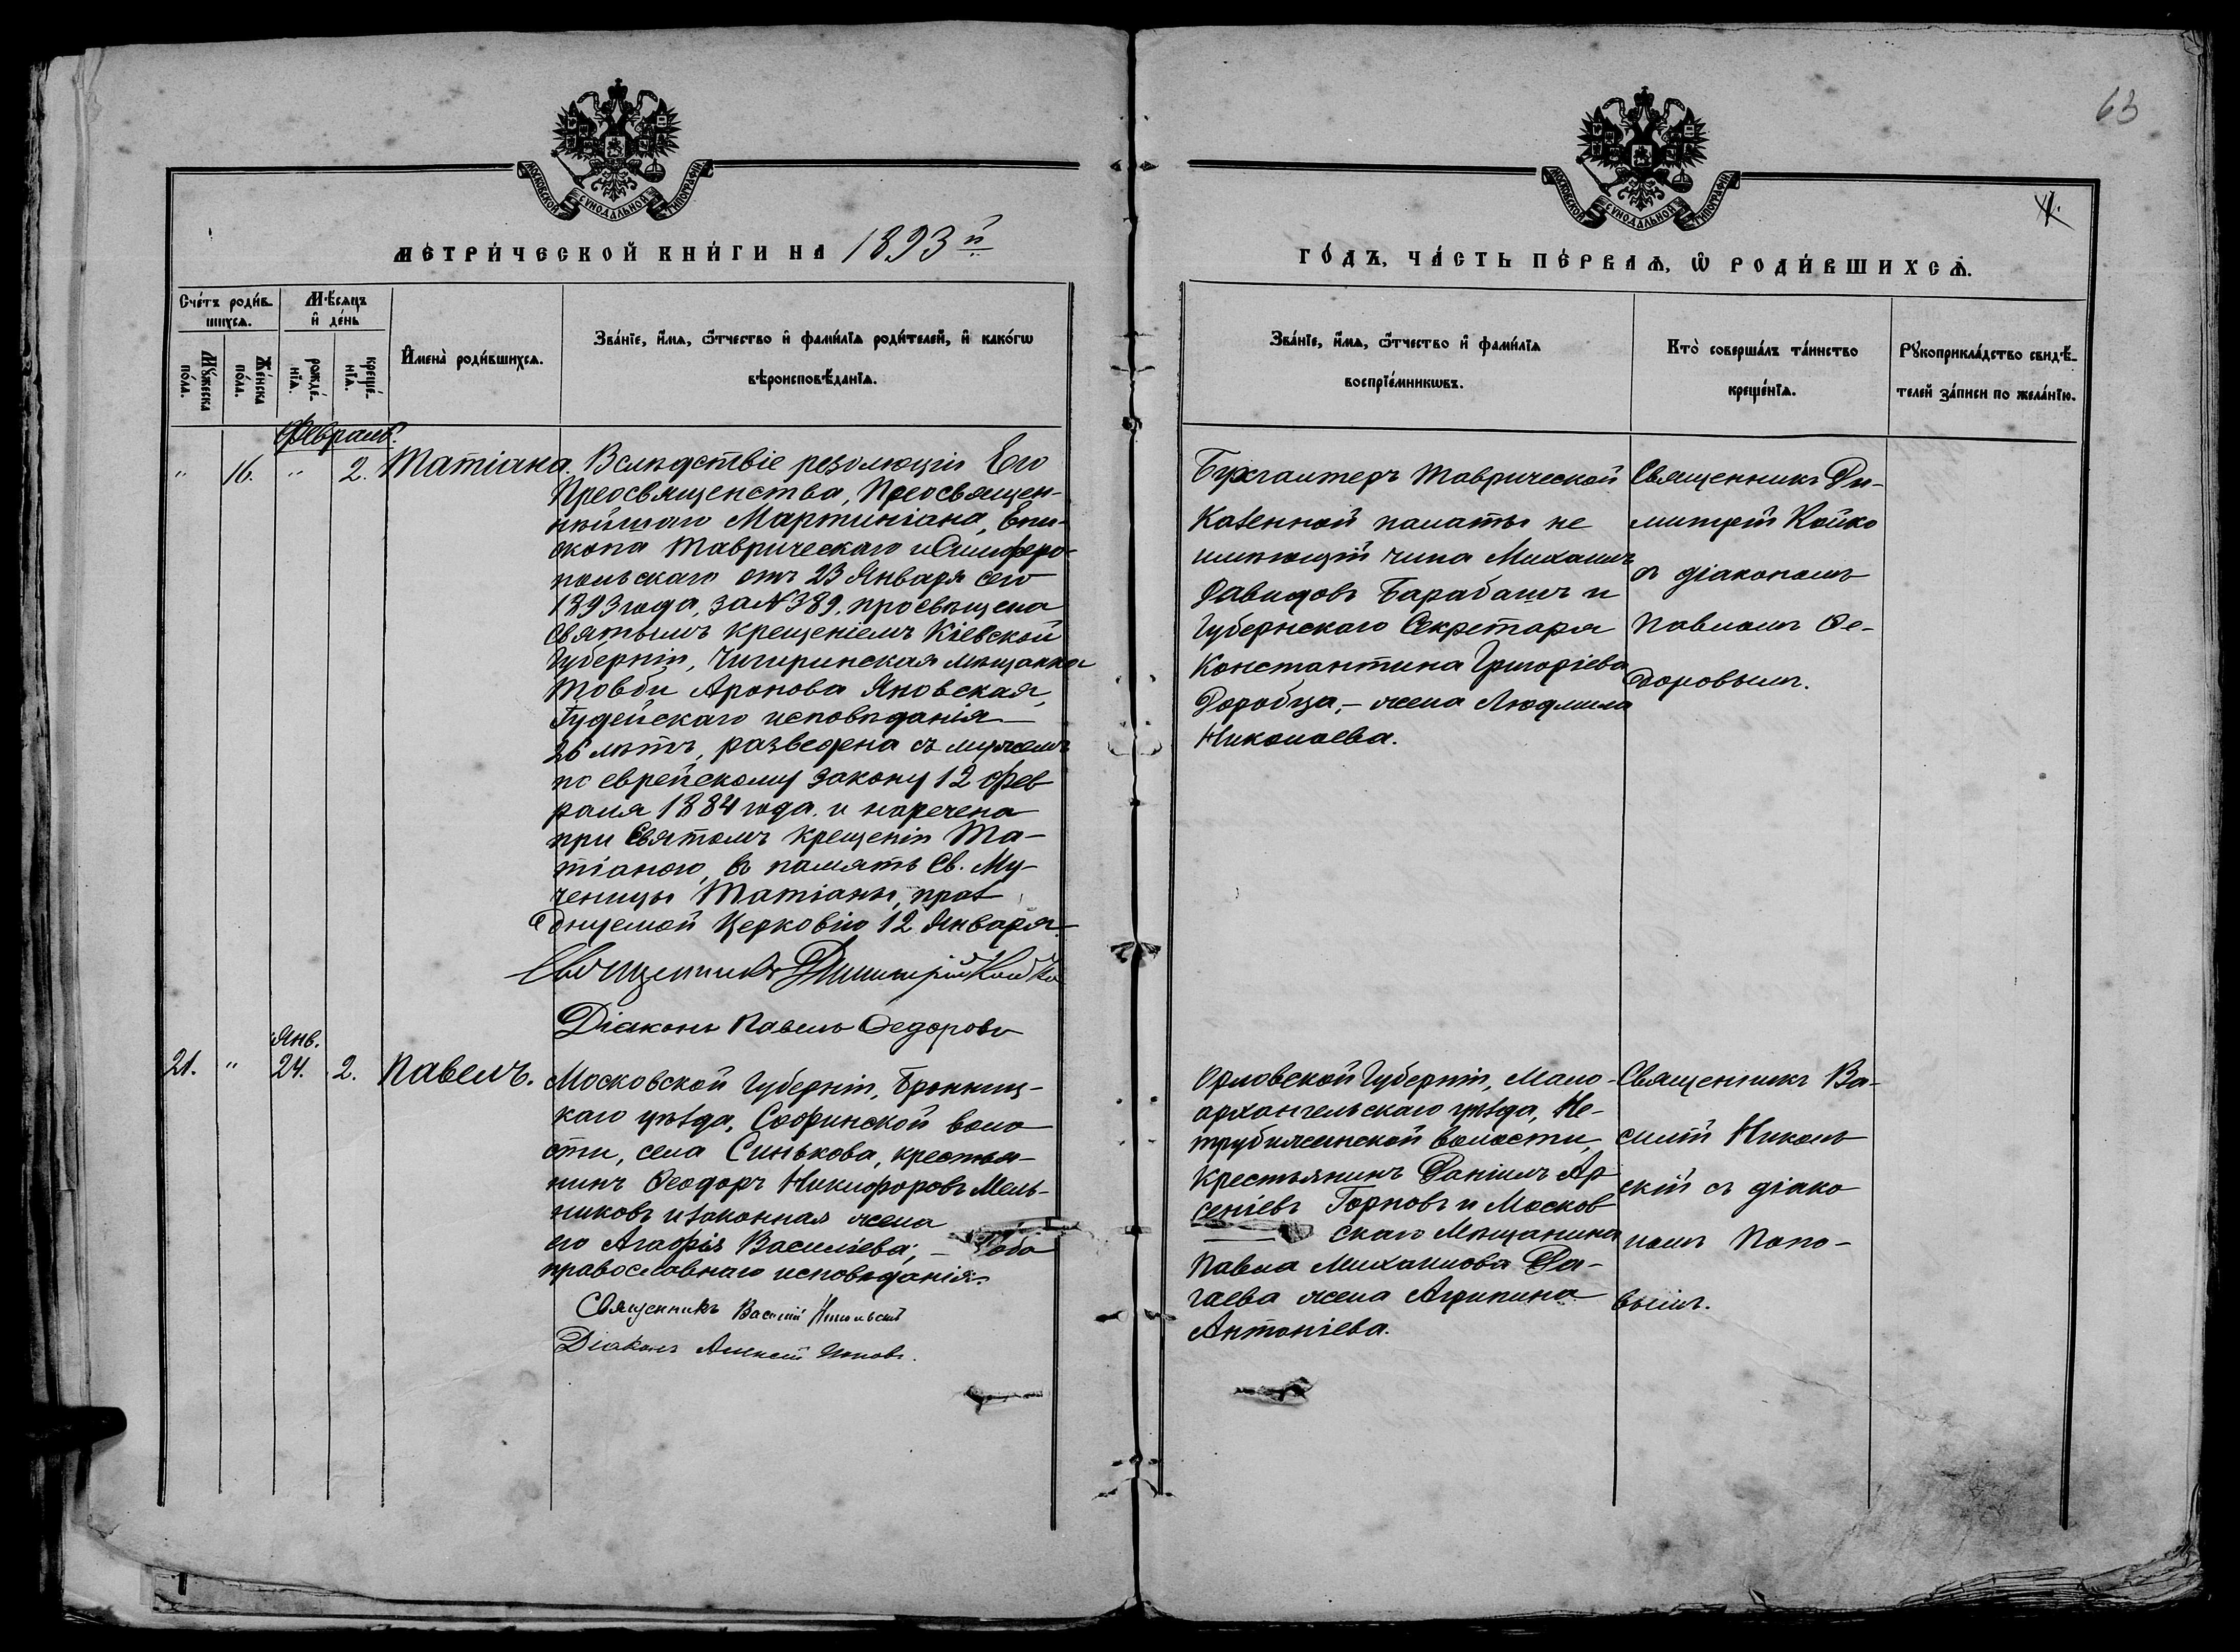 63
МОСКОВСКОЙ СѴНОДАЛЬНОЙ ТИПОГРАФІИ
МОСКОВСКОЙ СѴНОДАЛЬНОЙ ТИПОГРАФІИ
МЕТРИ́ЧЕСКОЙ КНИ́ГИ НА 1893й
ГО́ДЪ, ЧА́СТЬ ПЕ́РВАѦ, Ѡ҆ РОДИ́ВШИХСѦ.
Сче́тъ роди́вшихсѧ.
Му́жеска по́ла.
Же́нска по́ла.
Мѣ́сѧцъ и҆ де́нь
рожде́нїѧ.
креще́нїѧ.
И҆мена̀ роди́вшихсѧ.
Зва́нїе, и҆́мѧ, ѻ҆́тчество и҆ фами́лїѧ роди́телей, и҆ како́гѡ
вѣроисповѣ́данїѧ.
Зва́нїе, и҆́мѧ, ѻ҆́тчество и҆ фами́лїѧ
воспрїе́мникѡвъ.
Кто̀ соверша́лъ та́инство
креще́нїѧ.
Рꙋкоприкла́дство свидѣ́-
телей за́писи по жела́нїю.
Февраль.
" 16. " 2. Татіана.
Вслѣдствіе резолюціи Его
Преосвященства, Преосвящен-
нѣйшаго Мартиніана, Епи-
скопа Таврическаго и Симферо-
польскаго отъ 23 Января сего
1893 года, за № 389. просвѣщена
Святымъ Крещеніемъ Кіевской
Губерніи, Чигиринская мѣщанка
Товби Аронова Яновская,
Іудейскаго исповѣданія
26 лѣтъ, разведена съ мужемъ
по еврейскому закону 12 Фев
раля 1884 года. и наречена
при Святомъ Крещеніи Та-
тіаною, въ память Св. Му-
ченицы Татіаны, праз
днуемой Церковію 12 Января.
Священникъ Димитрій Койко
Діаконъ Павелъ Ѳедоровъ
Бухгалтеръ Таврической
Казенной палаты не
имѣющій чина Михаилъ
Давидовъ Барабашъ и
Губернскаго Секретаря
Константина Григоріева
Доробца, - жена Людмила
Николаева.
Священникъ Ди-
митрій Койко
съ діакономъ
Павломъ Ѳе-
доровымъ.
Янв.
21. " 24. 2. Павелъ.
Московской Губерніи, Бронниц-
каго уѣзда, Софринской воло
сти, села Синькова, крестья-
нинъ Ѳеодоръ Никифоровъ Мель-
никовъ и законная жена
его Агафія Васильева, - оба
православнаго исповѣданія.
Священникъ Василій Никольскій
Діаконъ Алексій Поповъ.
Орловской Губерніи, Мало-
архангельскаго уѣзда, Не-
трубжинской волости,
Крестьянинъ Даніилъ Ар
сеніевъ Горповъ и Москов
скаго Мѣщанина
Павла Михаилова Да-
гаева жена Агрипина
Антоніева.
Священникъ Ва-
силій Николь
скій съ діако
номъ Попо-
вымъ.